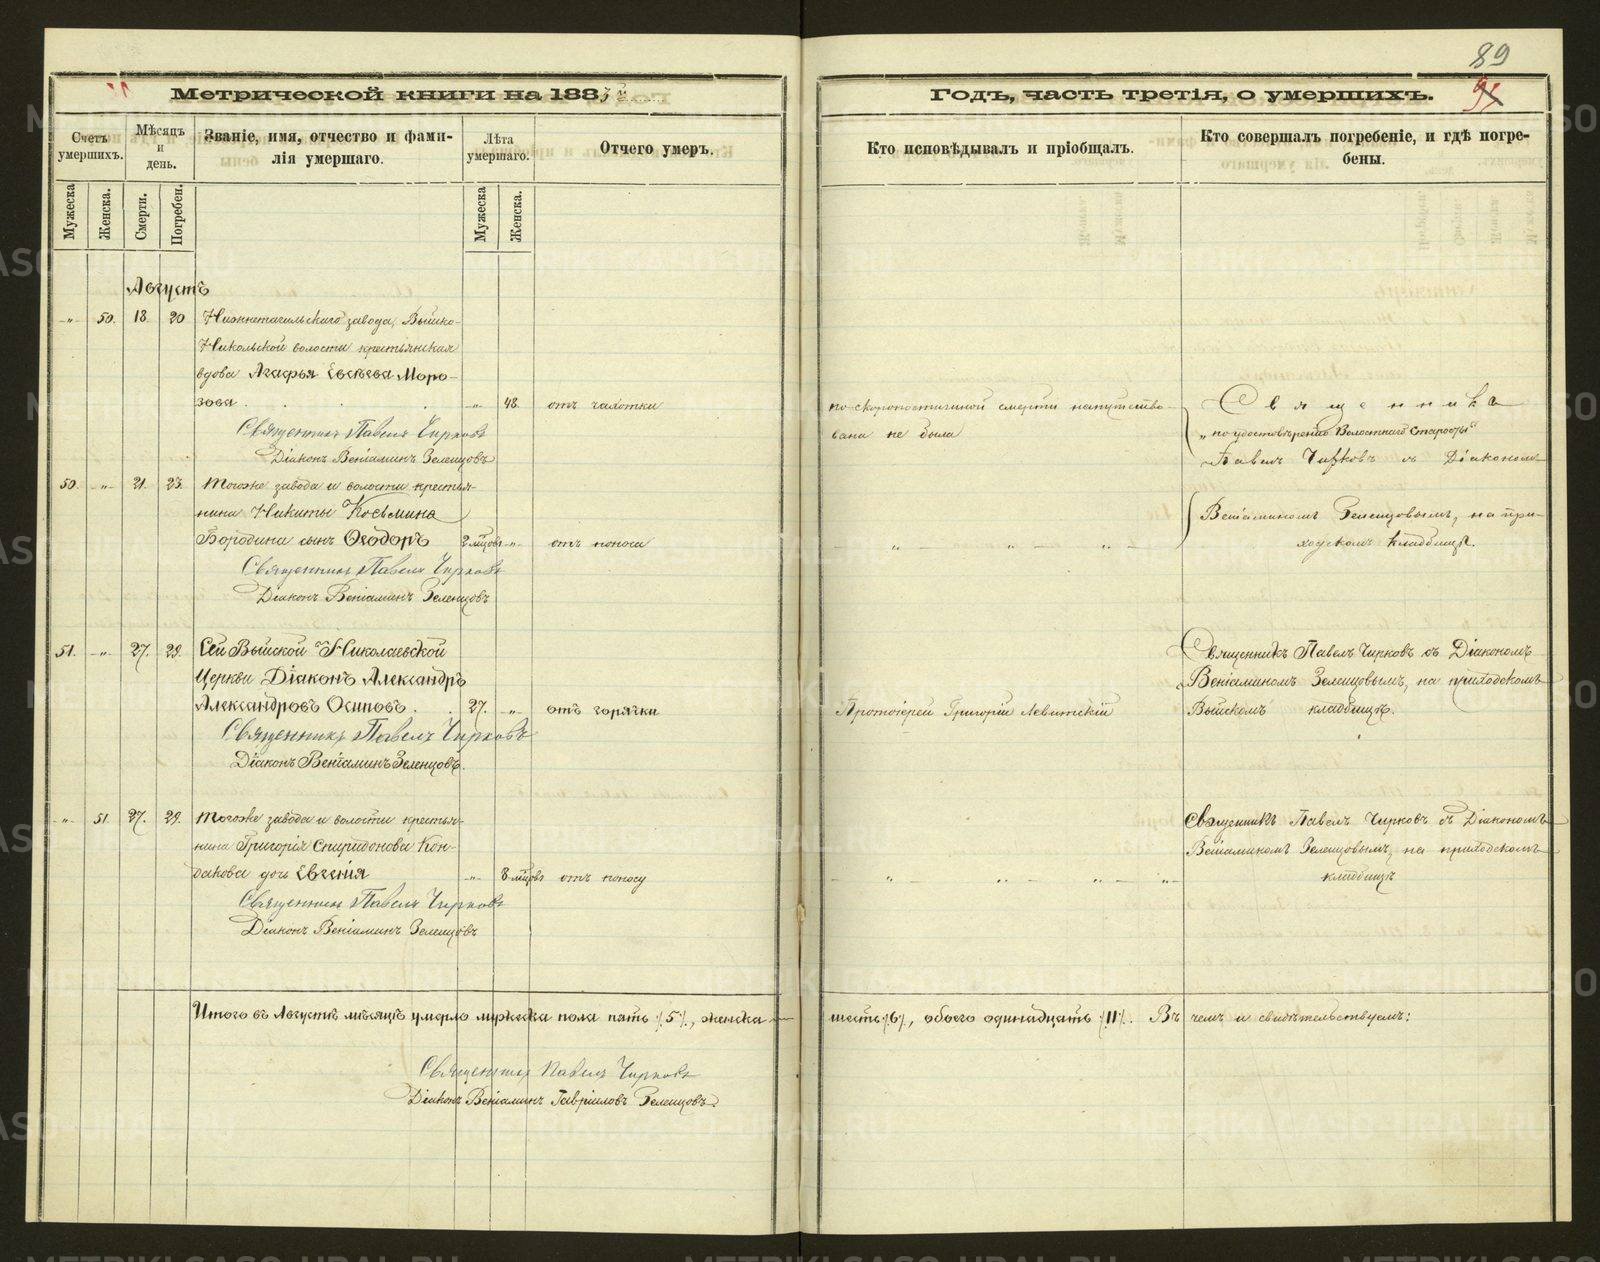 89
95
Метрической книги на 188
Годъ, часть третія, о умершихъ.
Счетъ умершихъ.
Мѣсяцъ и день.
Званіе, имя, отчество и фами-
лія умершаго.
Лѣта умершаго.
Отчего умеръ.
Кто исповѣдывалъ и пріобщалъ.
Кто совершалъ погребеніе, и гдѣ погре-
бены.
Мужеска
Женска.
Смерти.
Погребен.
Мужеска
Женска.
Августъ
-"- 50. 18. 20 Нижнетагильскаго завода, Выйско-
Никольской волости крестьянская
вдова Агафья Евсѣева Моро-
зова . . . -"- 48. отъ чахотки
по скоропостижной смерти напутство-
вана не была
Священникъ Павелъ Чирковъ
Діаконъ Веніаминъ Зеленцовъ
Священника
"по удостовѣренію Волостнаго Старосты"
Павелъ Чирковъ съ Діакономъ
Веніаминомъ Зеленцовымъ, на при-
ходскомъ кладбищѣ.
50. -"- 21. 23. Тогоже завода и волости крестья-
нина Никиты Косьмина
Бородина сынъ Ѳеодоръ 2 мѣсцовъ -"- отъ поноса
- " - " - " -
Священникъ Павелъ Чирковъ
Діаконъ Веніаминъ Зеленцовъ
51. -"- 27. 29. Сей Выйской Николаевской
Церкви Діаконъ Александръ
Александровъ Осиповъ . 27. -"- отъ горячки
Протоіерей Григорій Левитскій
Священникъ Павелъ Чирковъ съ Діакономъ
Веніаминомъ Зеленцовымъ, на приходскомъ
Выйскомъ кладбищѣ.
Священникъ Павелъ Чирковъ
Діаконъ Веніаминъ Зеленцовъ.
-"- 51 27. 29. Тогоже завода и волости крестья-
нина Григорія Спиридонова Кон-
дакова дочь Евгенія -"- 8 мѣсцовъ отъ поносу
- " - " - " - " -
Священникъ Павелъ Чирковъ съ Діакономъ
Веніаминомъ Зеленцовымъ, на приходскомъ
кладбищѣ
Священникъ Павелъ Чирковъ
Діаконъ Веніаминъ Зеленцовъ
Итого въ Августѣ мѣсяцѣ умерло мужеска пола пять /5/, женска шесть /6/, обоего одинадцать /11/. Въ чемъ и свидѣтельствуемъ:
Священникъ Павелъ Чирковъ
Діаконъ Веніаминъ Гавріиловъ Зеленцовъ.
METRIKI.GASO-URAL.RU